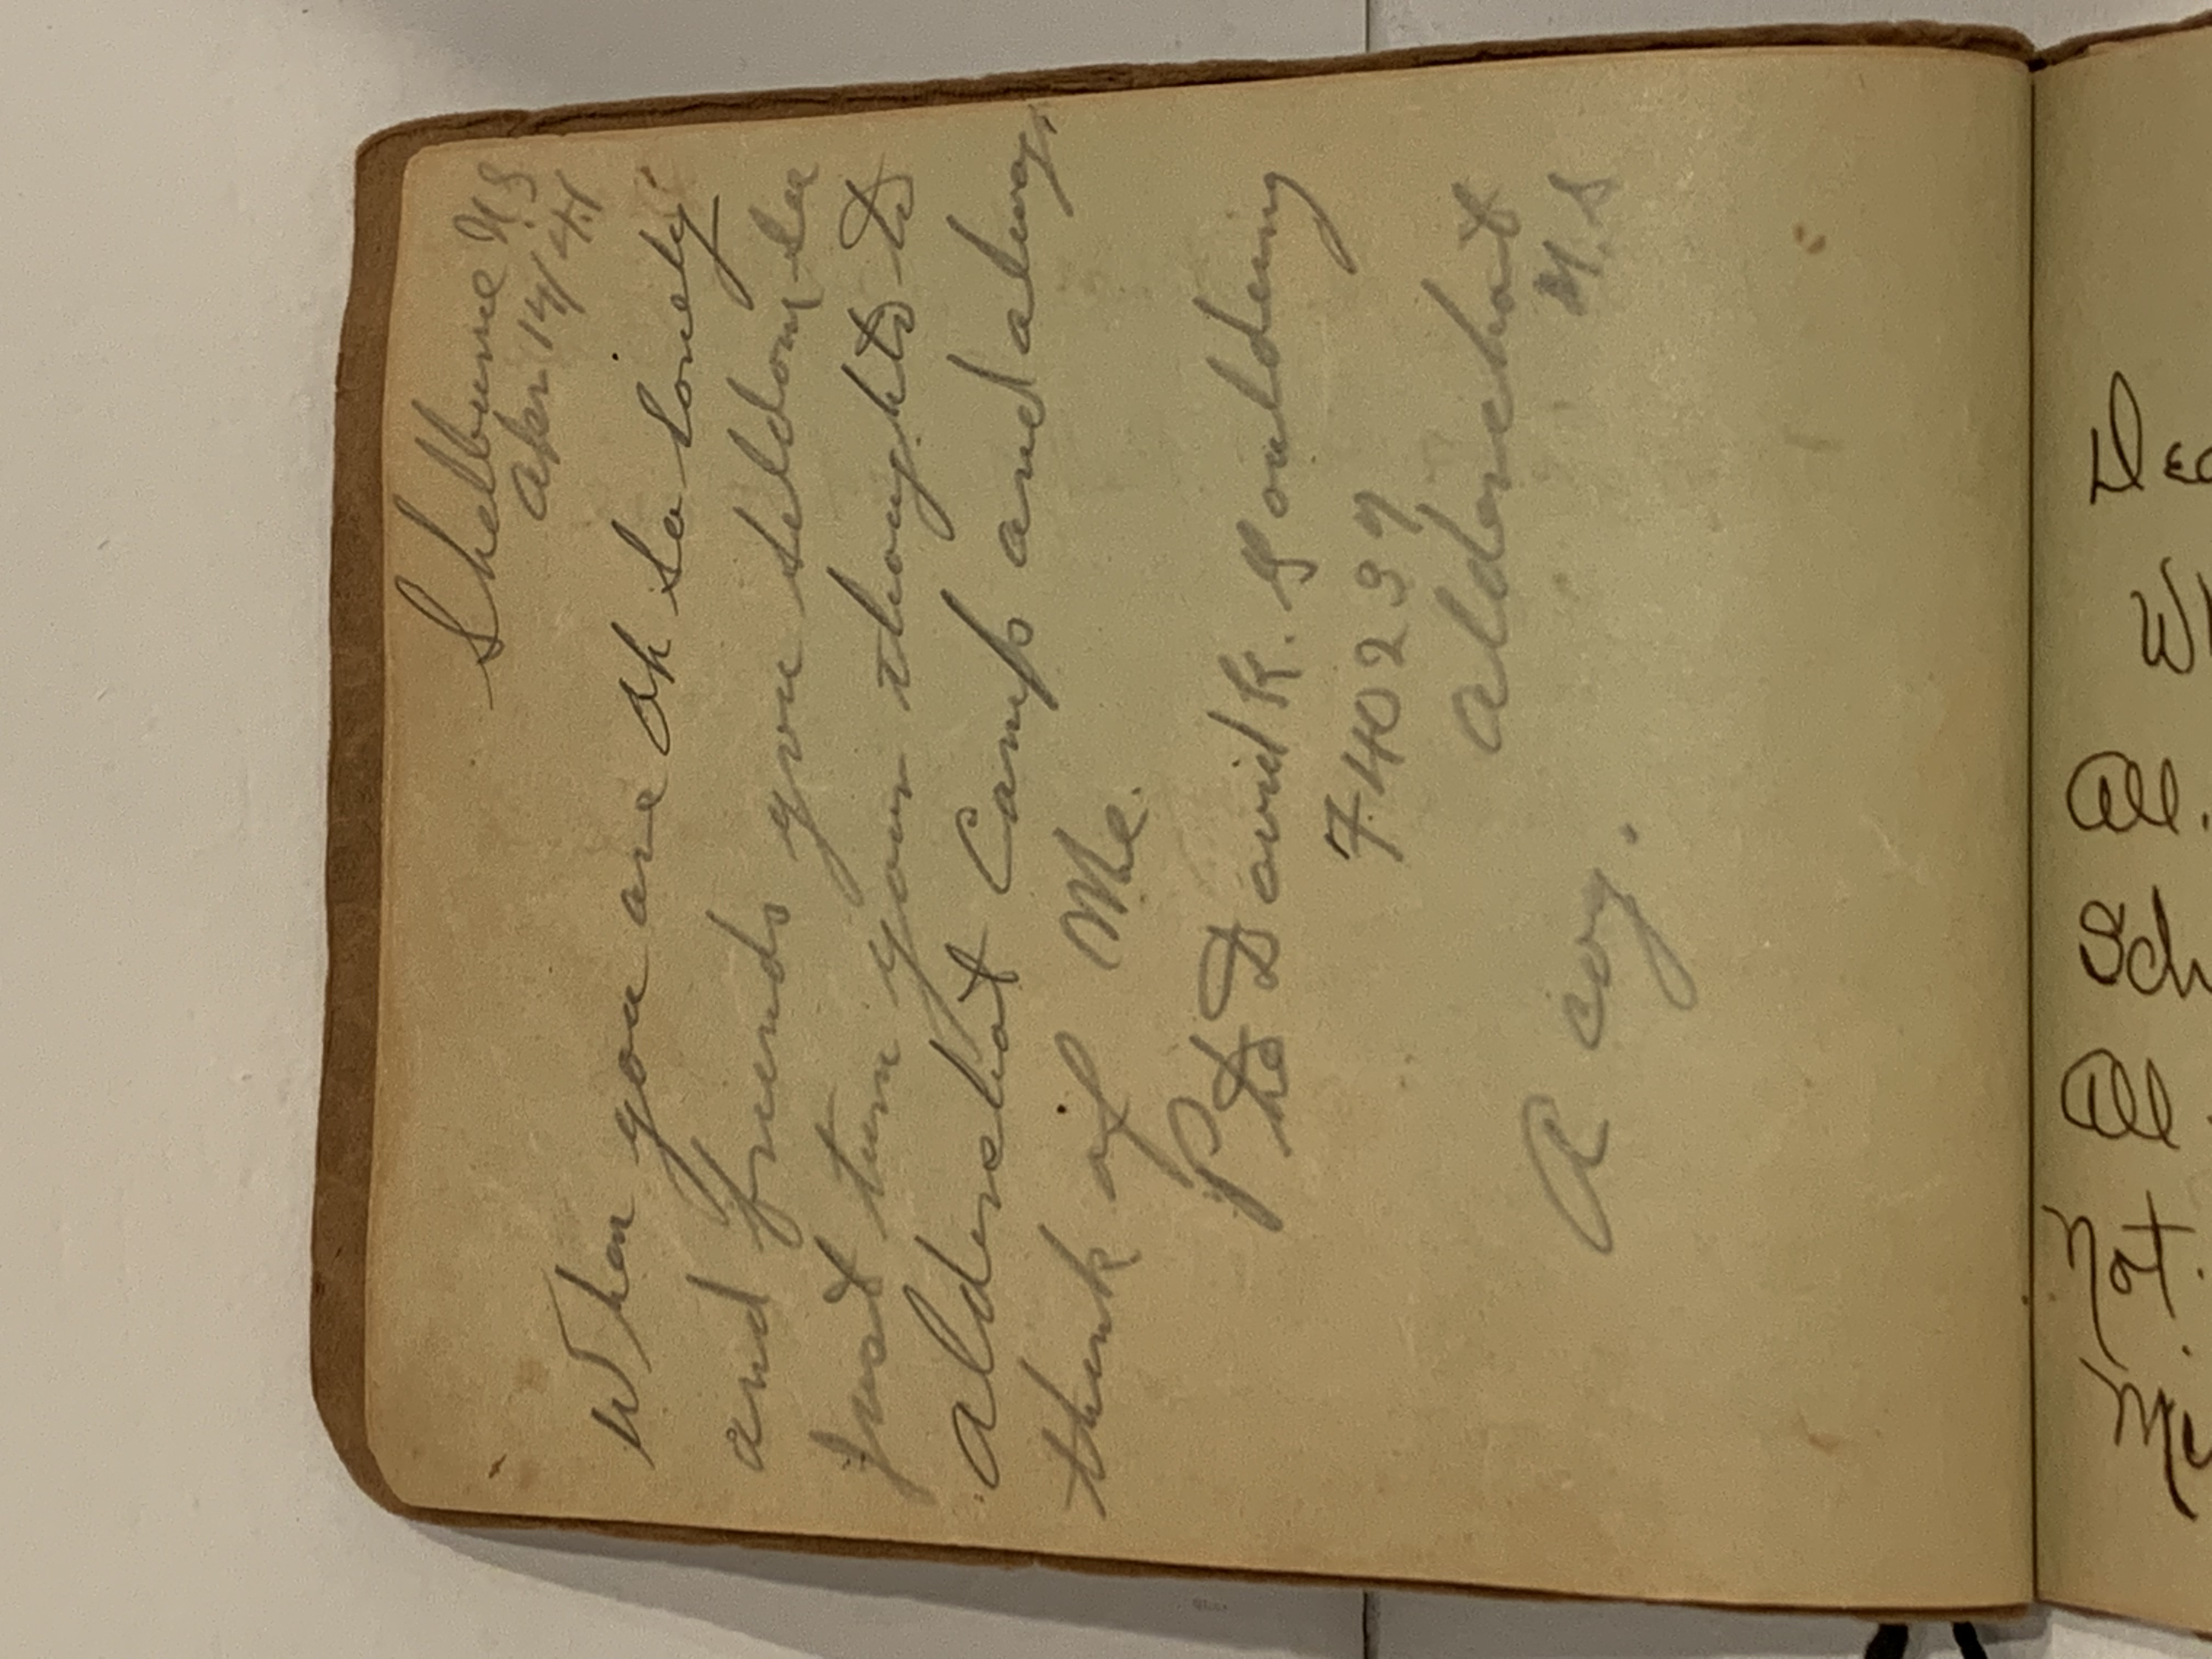 Shelburne N.S
Apr 14/41
When you are oh so lonely
and friends you seldom see
just turn your thoughts to
Aldershot Camp and always
think of Me.
Pte David K. Goulding
F 40237
Aldershot
N.S
A coy.
Dea
Wh
All.
Sch
All
Not.
My